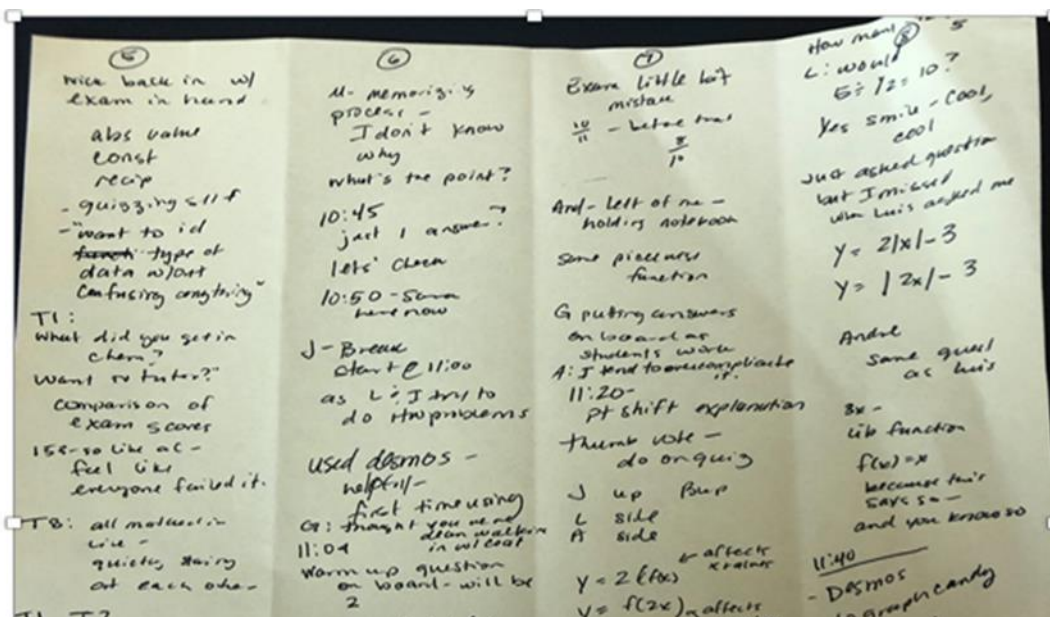 5
back in w/
exam in hand
abs value
const
recip
- quizzing self
- "want to id
type of
data w/out
confusing anything"
T1:
What did you get in
chem?
Want to tutor?"
comparison of
exam scores
feel like
everyone failed it.
T8: all
quietly staring
at each other
6
M- memorizing
process -
I don't know
why
what's the point?
10:45
just 1 answer?
lets' check
10:50 - Sara
here now
J - Break
start @ 11:00
as L: I try to
do HW problems
used desmos -
helpful -
first time using
G: thought you were
dean walking
in w/ coat
11:04
Warm up question
on board - will be
2
7
Exam little bit
mistake
10/11 - better than
8/10
And - left of me -
holding notebook
Same piecewise
function
G putting answers
on board as
students work
A: I tend to overcomplicate
it.
11:20 -
pt shift explanation
thumb vote -
do on quiz
J up B up
L side
A side
affects
x values
y = 2f(x)
y = f(2x) affects
8
How many
5
L: would
5 ÷ 1/2 = 10?
Yes smile - cool,
cool
Just asked question
but I missed
when Luis asked me
y = 2|x| - 3
y = |2x| - 3
Andre
same quest
as Luis
8x -
lib function
f(x) = x
because this
says so -
and you know so
11:40
- Desmos
graph candy